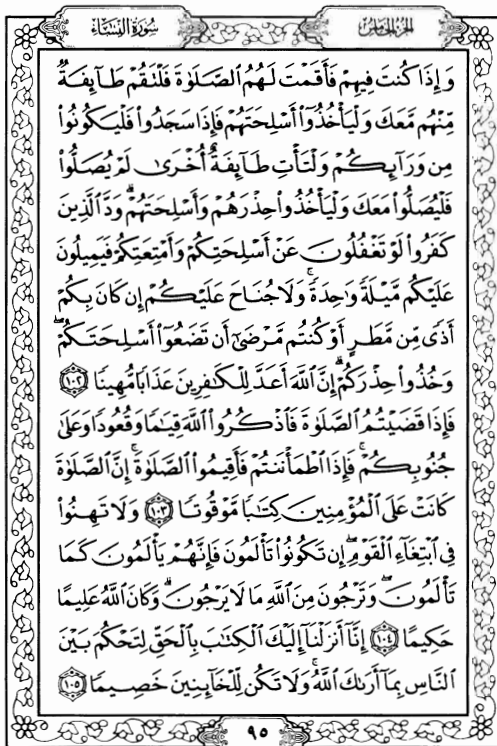 سُورَةُ النِّسَاءِ
الجُزءُ الخَامِسُ
وَإِذَا كُنتَ فِيهِمْ فَأَقَمْتَ لَهُمُ ٱلصَّلَوٰةَ فَلْتَقُمْ طَآئِفَةٌ
مِّنْهُم مَّعَكَ وَلْيَأْخُذُوٓا۟ أَسْلِحَتَهُمْ فَإِذَا سَجَدُوا۟ فَلْيَكُونُوا۟
مِن وَرَآئِكُمْ وَلْتَأْتِ طَآئِفَةٌ أُخْرَىٰ لَمْ يُصَلُّوا۟
فَلْيُصَلُّوا۟ مَعَكَ وَلْيَأْخُذُوا۟ حِذْرَهُمْ وَأَسْلِحَتَهُمْ ۗ وَدَّ ٱلَّذِينَ
كَفَرُوا۟ لَوْ تَغْفُلُونَ عَنْ أَسْلِحَتِكُمْ وَأَمْتِعَتِكُمْ فَيَمِيلُونَ
عَلَيْكُم مَّيْلَةً وَٰحِدَةً ۚ وَلَا جُنَاحَ عَلَيْكُمْ إِن كَانَ بِكُمْ
أَذًى مِّن مَّطَرٍ أَوْ كُنتُم مَّرْضَىٰٓ أَن تَضَعُوٓا۟ أَسْلِحَتَكُمْ ۖ
وَخُذُوا۟ حِذْرَكُمْ ۗ إِنَّ ٱللَّهَ أَعَدَّ لِلْكَٰفِرِينَ عَذَابًا مُّهِينًا ١٠٢
فَإِذَا قَضَيْتُمُ ٱلصَّلَوٰةَ فَٱذْكُرُوا۟ ٱللَّهَ قِيَٰمًا وَقُعُودًا وَعَلَىٰ
جُنُوبِكُمْ ۚ فَإِذَا ٱطْمَأْنَنتُمْ فَأَقِيمُوا۟ ٱلصَّلَوٰةَ ۚ إِنَّ ٱلصَّلَوٰةَ
كَانَتْ عَلَى ٱلْمُؤْمِنِينَ كِتَٰبًا مَّوْقُوتًا ١٠٣ وَلَا تَهِنُوا۟
فِى ٱبْتِغَآءِ ٱلْقَوْمِ ۖ إِن تَكُونُوا۟ تَأْلَمُونَ فَإِنَّهُمْ يَأْلَمُونَ كَمَا
تَأْلَمُونَ ۖ وَتَرْجُونَ مِنَ ٱللَّهِ مَا لَا يَرْجُونَ ۗ وَكَانَ ٱللَّهُ عَلِيمًا
حَكِيمًا ١٠٤ إِنَّآ أَنزَلْنَآ إِلَيْكَ ٱلْكِتَٰبَ بِٱلْحَقِّ لِتَحْكُمَ بَيْنَ
ٱلنَّاسِ بِمَآ أَرَىٰكَ ٱللَّهُ ۚ وَلَا تَكُن لِّلْخَآئِنِينَ خَصِيمًا ١٠٥
٩٥